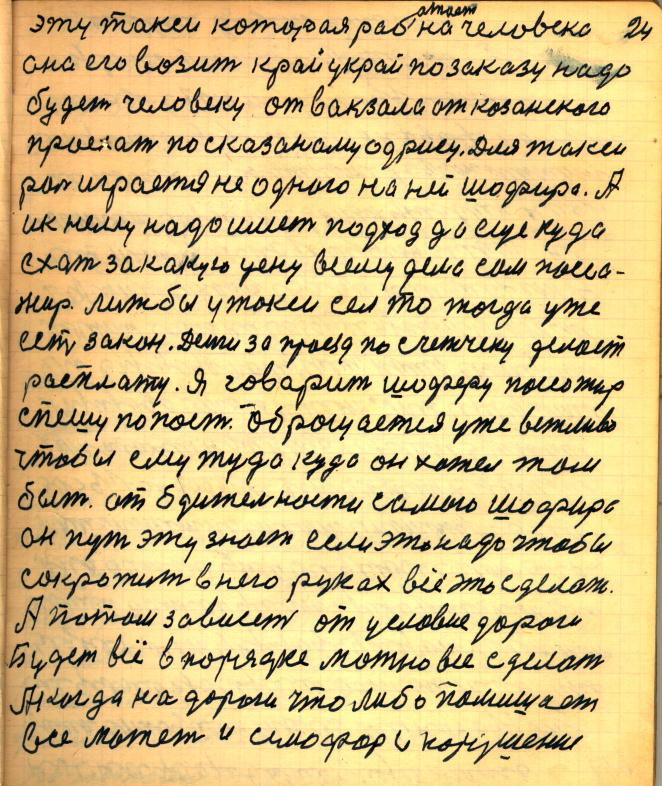 эту такси которая работает на человека 24
она его возит край украй по заказу надо
будет человеку от вакзала от козанского
проехат по сказаному одрису. Для такси
рол играется не одного на ней шофира. А
ик нему надо имет подход да еще куда
ехат за какую цену всему дела сам посса-
жир. лижбы у такси сел то тогда уже
есть закон. Денги за проезд по счетчеку делает
расплату. Я говарит шоферу поссожир
спешу попост. Оброщается уже вежливо
чтобы ему туда куда он хотел там
быт. от бдителности самого шофира
он пут эту знает если это надо чтобы
сократит в него руках всё это сделат.
А потом зависет от условие дороги
Будет всё в порядке можно все сделат
А когда на дороги что либо помишает
Все может и семофор и нарушение